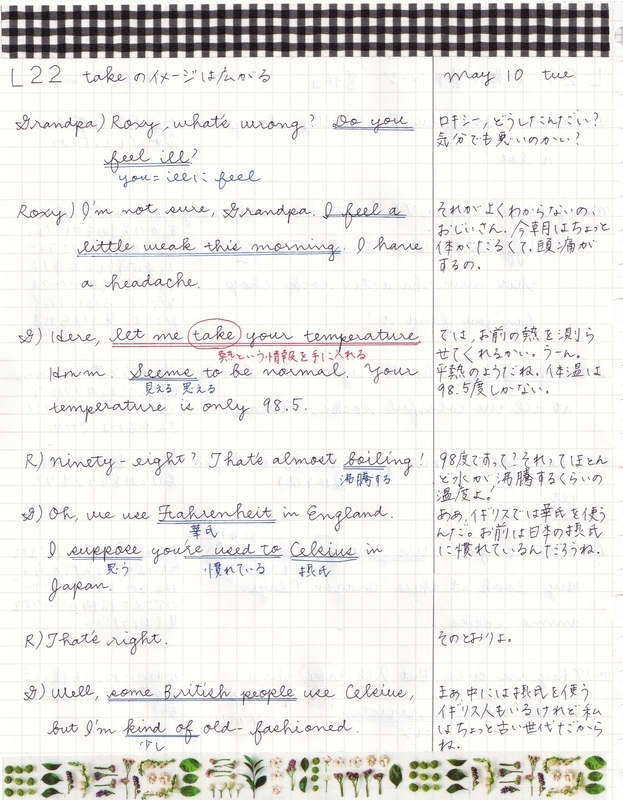 L22 take のイメージは広がる
May 10 tue
Grandpa) Roxy, what's wrong? Do you
feel ill?
you = illに feel
ロキシー, どうしたんだい?
気分でも悪いのかい?
Roxy) I'm not sure, Grandpa. I feel a
little weak this morning. I have
a headache.
それがよくわからないの、
おじいさん。今朝はちょっと
体がだるくて、頭痛が
するの。
G) Here, let me take your temperature.
熱という情報を手に入れる
Hmm. Seems to be normal. Your
見える 思える
temperature is only 98.5.
では, お前の熱を測ら
せてくれるかい。うーん。
平熱のようだね。体温は
98.5度しかない。
R) Ninety-eight? That's almost boiling!
沸騰する
98度ですって? それってほとん
ど水が沸騰するくらいの
温度よ!
G) Oh, we use Fahrenheit in England.
華氏
I suppose you're used to Celsius in
思う 慣れている 摂氏
Japan.
ああ, イギリスでは華氏を使う
んだ。お前は日本の摂氏
に慣れているんだろうね。
R) That's right.
そのとおりよ。
G) Well, some British people use Celsius,
but I'm kind of old-fashioned.
少し
まあ, 中には摂氏を使う
イギリス人もいるけれど 私
はちょっと古い世代だから
ね。